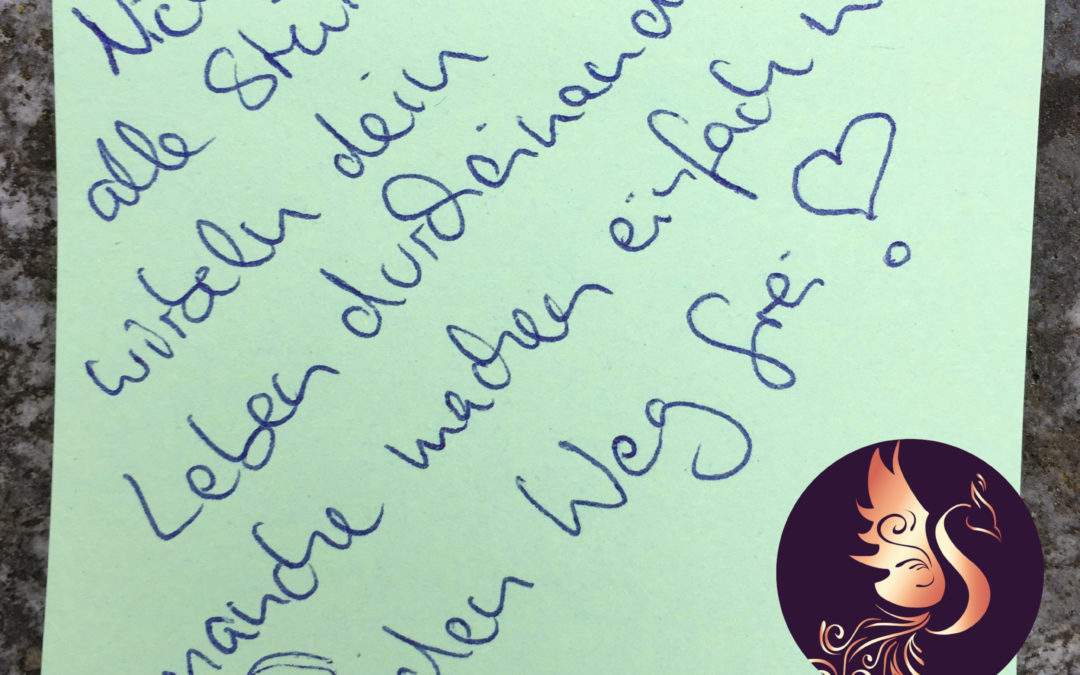 Nic
alle Stür
wirbeln dein
Leben durcheinand
manche machen einfach n
den Weg frei